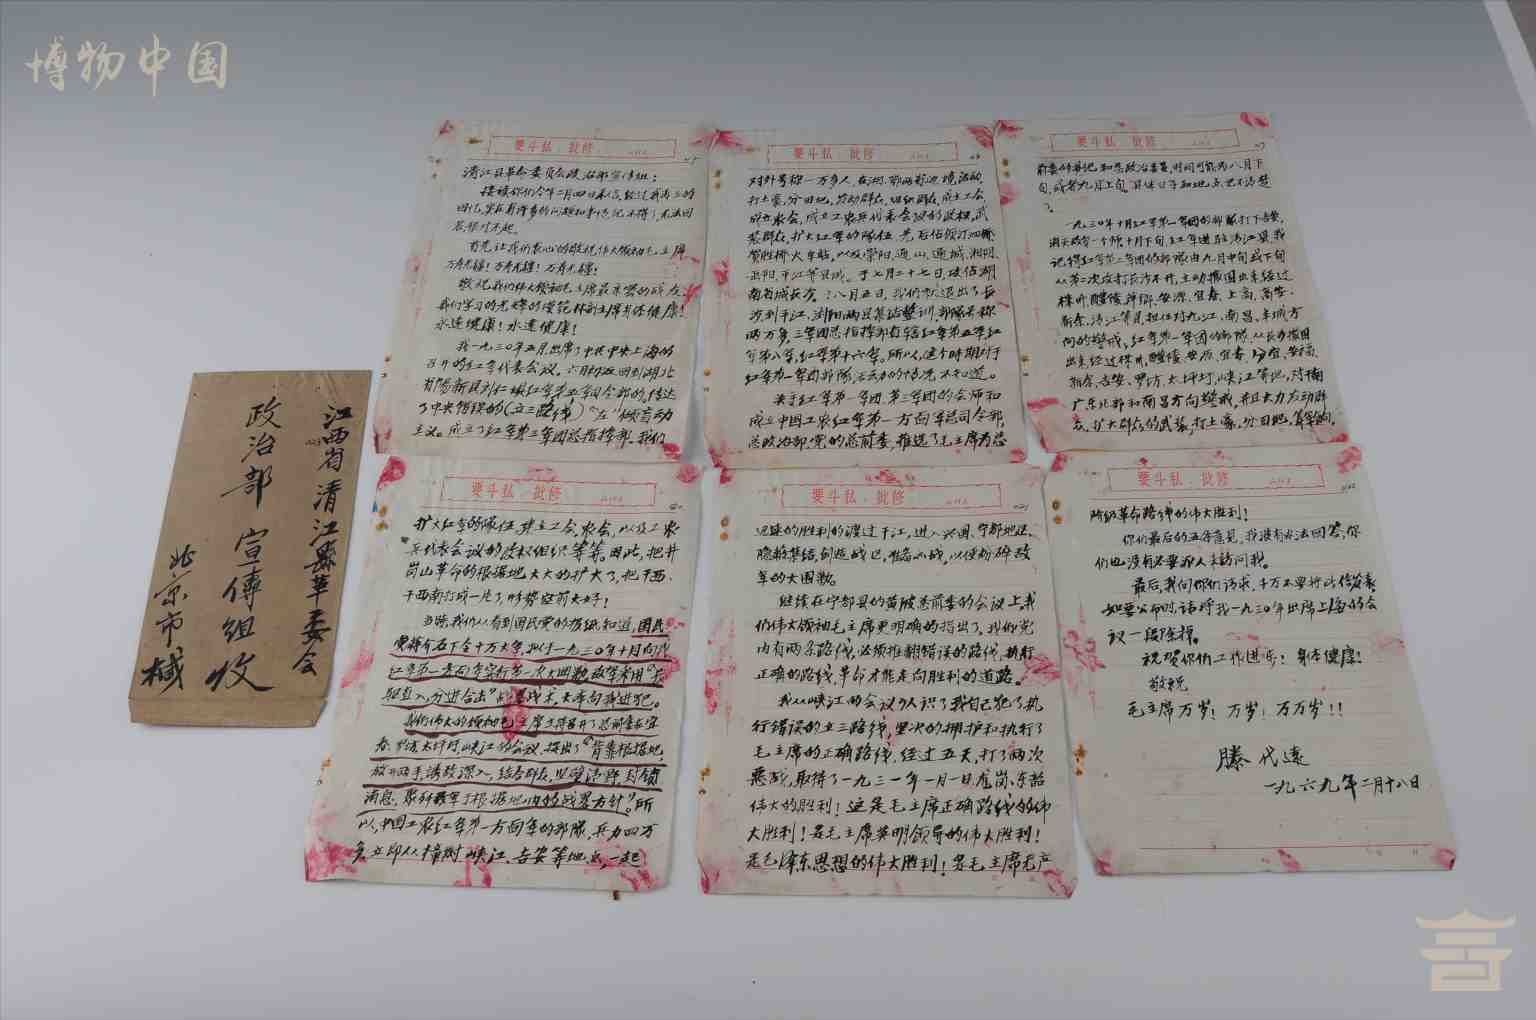 博物中国
江西省清江县革委会
政治部 宣傳组 收
北京市 槭
要斗私 批修
清江县革命委员会政治部宣传组：
接读你们今年二月四日来信，经过我再三的
回忆，实在有许多的问题和事情记不得了，无法回
答很对不起。
首先让我们衷心的敬祝伟大领袖毛主席
万寿无疆！万寿无疆！万寿无疆！
敬祝我们伟大领袖毛主席最亲密的战友、
我们学习的光辉的模范林副主席身体健康！
永远健康！永远健康！
我一九三〇年五月出席了中共中央上海的
召开的红军代表会议，六月初返回到湖北
省阳新县刘仁塘红军第五军司令部的，传达
了中央错误的(立三路线)“左”倾盲动
主义。成立了红军第三军团总指挥部。我们
要斗私 批修
对外号称一万多人，在湘、鄂两省边境活动，
打土豪，分田地，发动群众，组织群众，成立工会，
成立农会，成立工农兵代表会议的政权，武
装群众，扩大红军的队伍。先后占领汀泗桥
贺胜桥火车站，以及崇阳、通山、通城、湘阴、
岳阳、平江等县城。于七月二十七日，攻占湖
南省城长沙。八月五日，我们就退出了长
沙到平江、浏阳两县集结整训，部队号称
两万多，三军团总指挥部直辖红军第五军红
军第八军，红军第十六军。所以，这个时期对于
红军第一军团部队活动的情况不知道。
关于红军第一军团、第三军团的会师和
成立中国工农红军第一方面军总司令部，
总政治部，党的总前委，推选了毛主席为总
要斗私 批修
前委的书记和总政治委员，时间可能为八月下
旬，或者九月上旬，具体日子和地点记不清楚
了。
一九三〇年十月红军第一军团的部队打下吉安，
湖头敌有一个师十月下旬，红军进驻清江县，我
记得红军第三军团的部队由九月中旬或下旬
从第二次攻打长沙不开，主动撤围出来经过
株州、醴陵、萍乡、安源、宜春、上高、高安、
新余、清江等县，担任对九江、南昌、丰城方
向的警戒，红军第一军团的部队，从长沙撤围
出来，经过株州、醴陵、安源、宜春、分宜、安福、
新余、吉安、罗坊、太坪圩、峡江等地，对赣
广东北部和南昌方向警戒，并且大力发动群
众，扩大群众的武装，打土豪，分田地，筹军饷，
要斗私 批修
扩大红军的队伍，建立工会、农会，以及工农
兵代表会议的政权组织等等。因此，把井
岗山革命的根据地大大的扩大了，把干西、
干西南打成一片了，形势空前大好！
当时，我们从看到国民党的报纸知道，国民
党蒋介石下令十万大军，拟于一九三〇年十月向我
红军第一方面军实行第一次大围剿，敌军采用“长
驱直入，分进合击”的战略战术，大举向我进犯。
我们伟大的领袖毛主席主持召开了总前委在宜
春、新余太坪圩、峡江的会议，提出了“背靠根据地，
放开两手，诱敌深入，结合群众，以坚清野，封锁
消息，聚歼敌军于根据地内的战略方针”。所
以，中国工农红军第一方面军的部队，兵力四万
多立即从樟树、峡江、吉安等地点，一起
要斗私 批修
迅速的胜利的渡过干江，进入兴国、宁都地区，
隐蔽集结，创造战机，准备以战，以便粉碎敌
军的大围剿。
继续在宁都县的黄陂总前委的会议上，我
们伟大领袖毛主席更明确的指出了，我们党
内有两条路线，必须推翻错误的路线，执行
正确的路线，革命才能走向胜利的道路。
我从峡江的会议乃认识了我自己犯了执
行错误的立三路线，坚决的拥护和执行了
毛主席的正确路线，经过五天，打了两次
恶战，取得了一九三一年一月一日，龙岗、东韶
伟大的胜利！这是毛主席正确路线的伟
大胜利！是毛主席英明领导的伟大胜利！
是毛泽东思想的伟大胜利！是毛主席无产
要斗私 批修
阶级革命路线的伟大胜利！
你们最后的五条意见，我没有办法回答，你
们也没有必要派人来访问我。
最后，我向你们请求，千万不要将此信发表，
如要公布时，请将我一九三〇年出席上海的会
议一段除掉。
祝贺你们工作进步！身体健康！
敬祝
毛主席万岁！万岁！万万岁！！
滕代远
一九六九年二月十八日